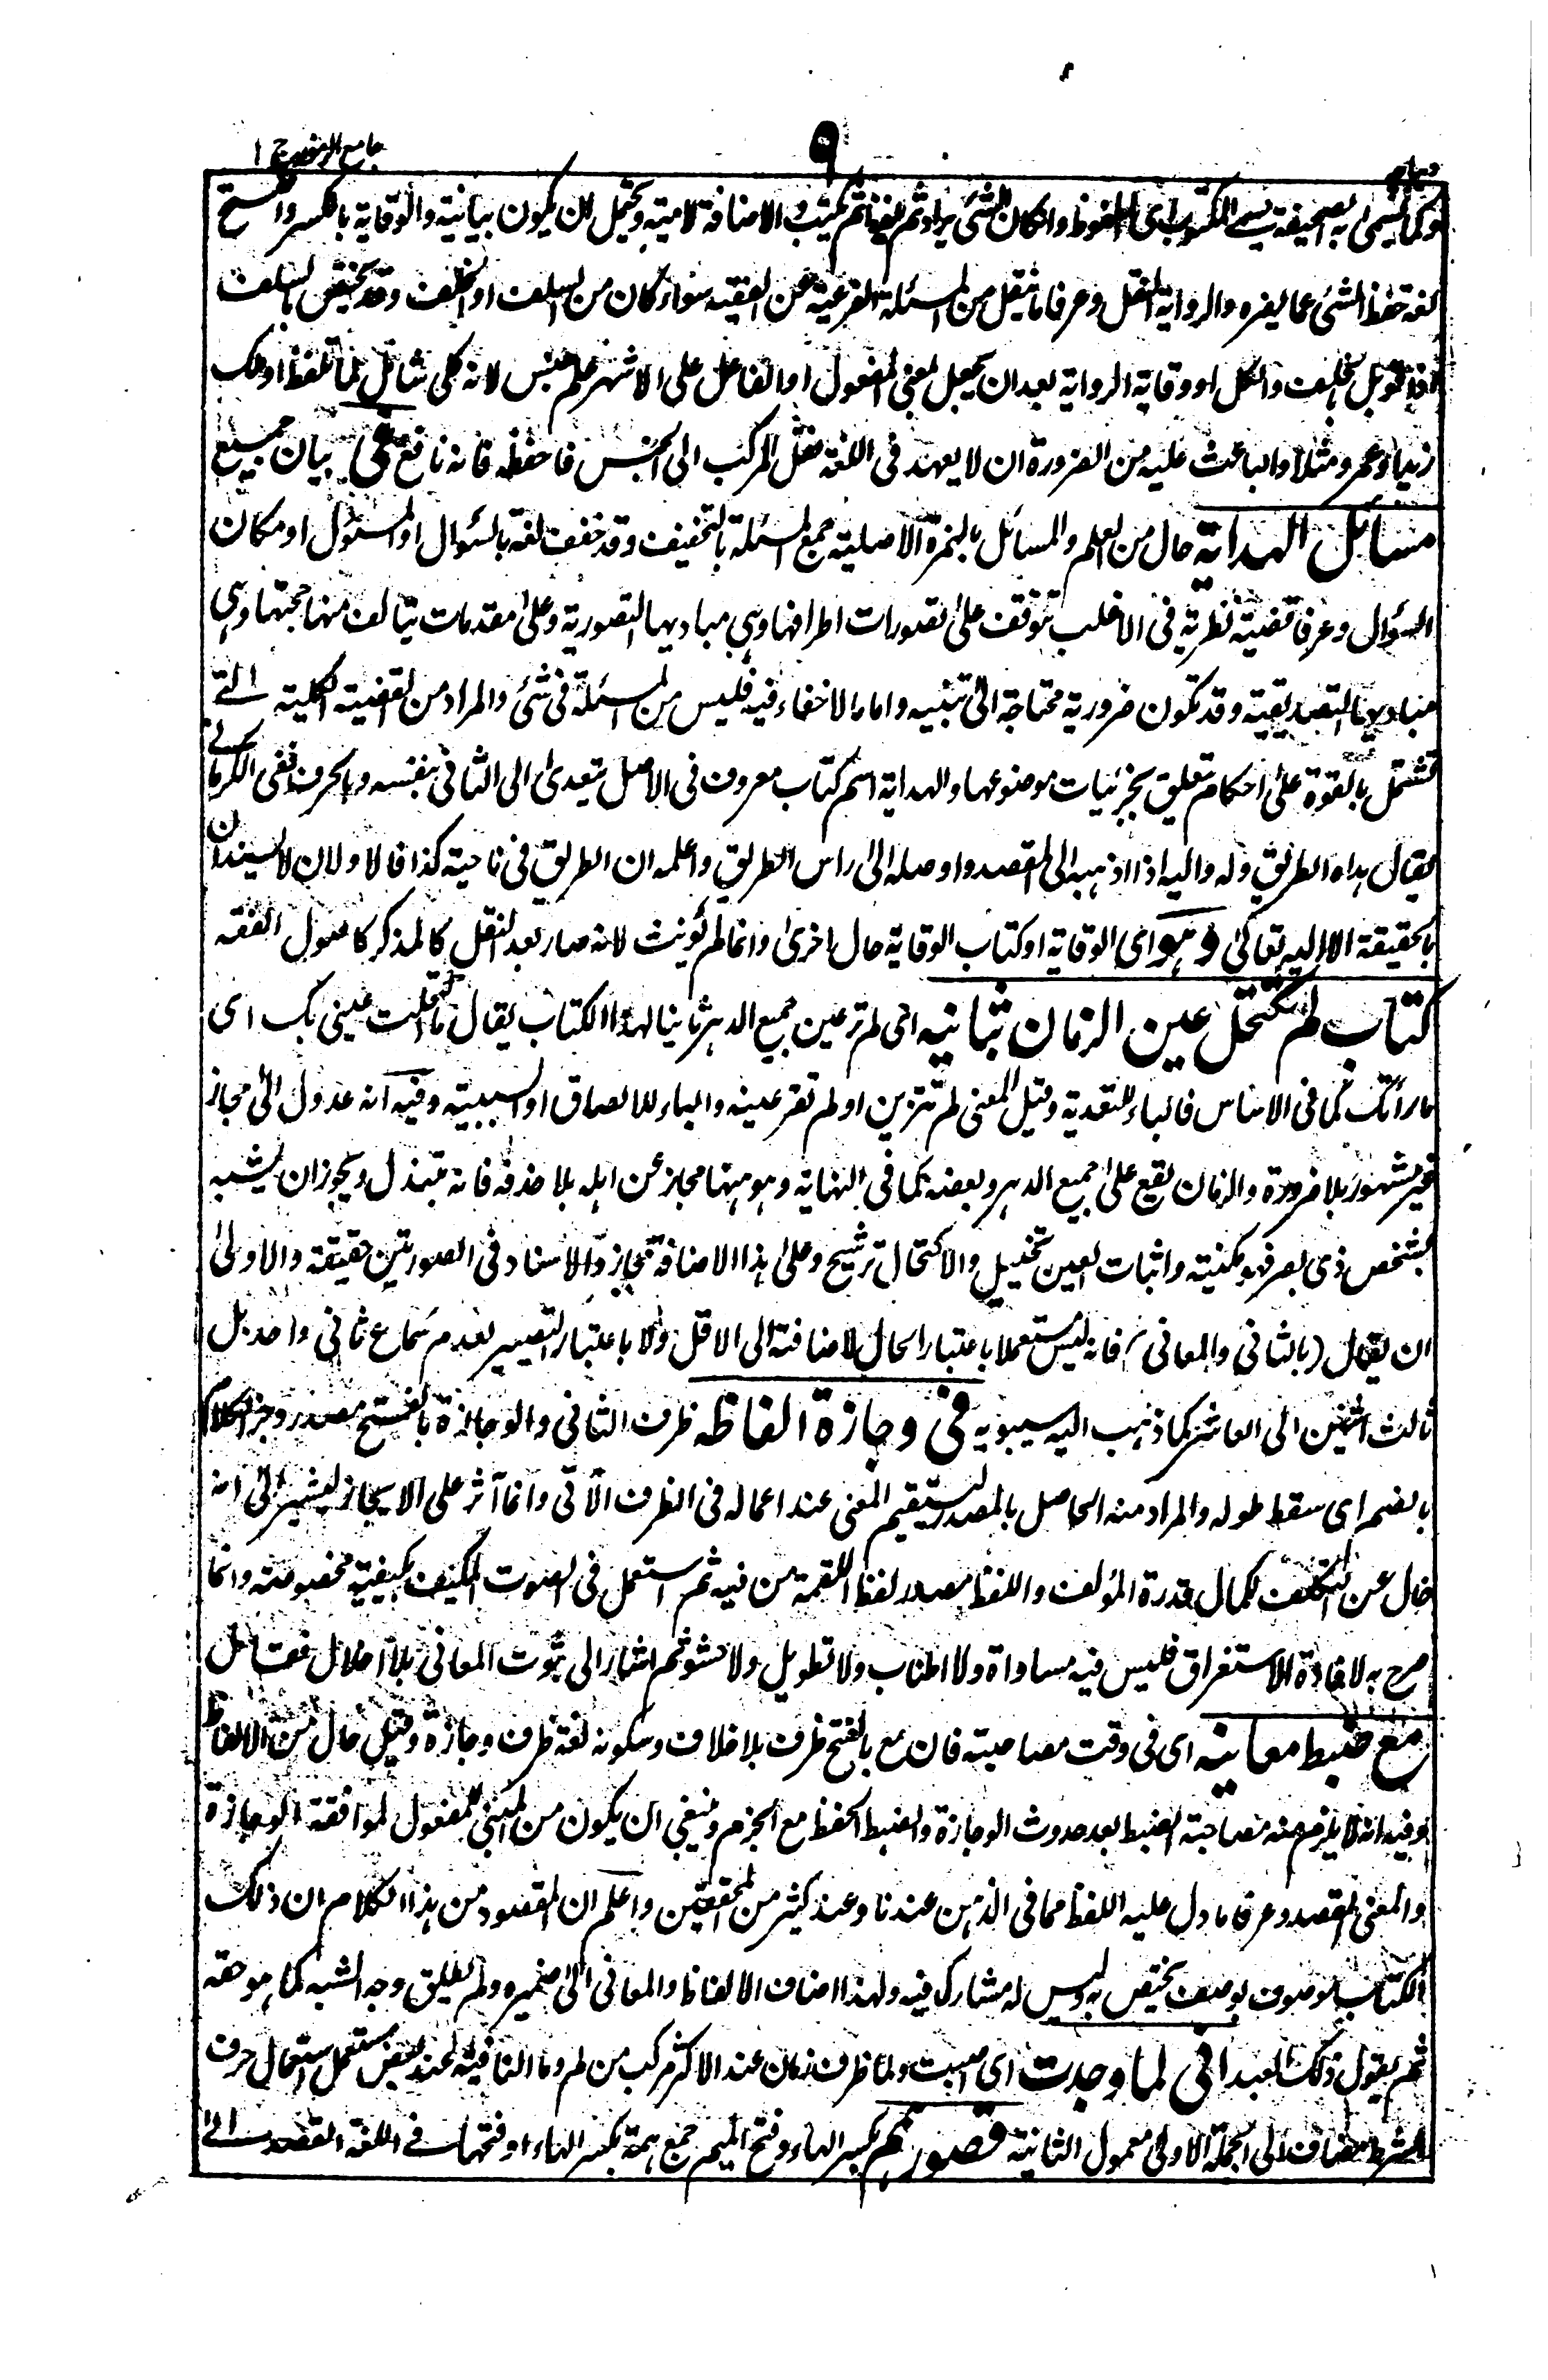 جامع الرموز ج ١
٩
وكما يسمى به الصحيفة يسمى المكتوب اى الملفوظ وان كان الشئ يراد ثم يلفظ ثم يكتب والاضافة لامية ويحتمل ان يكون بيانية والوقاية بالكسر والفتح
لغة حفظ الشئ عما يضره والرواية النقل وعرفا ما ينقل من المسئلة الفرعية عن الفقيه سواء كان من السلف او الخلف وقد يختص بالسلف
اذا قوبل بالخلف والكل او وقاية الرواية بعد ان يجعل بمعنى المفعول او الفاعل على الاشهر علم جنس لانه كلى شامل لما تلفظ او ملك
زيد او عمرو مثلا والباعث عليه من الضرورة ان لا يعهد فى اللغة نقل المركب الى الجنس فاحفظه فانه نافع فى بيان جميع
مسائل الهداية حال من العلم والمسائل بالهمزة الاصلية جمع المسئلة بالتخفيف وقد خففت لغة بالسؤال او المسئول او مكان
السؤال وعرفا قضية نظرية فى الاغلب تتوقف على تصورات اطرافها وهى مباديها التصورية وعلى مقدمات يتالف منها حجتها وهى
مباديها التصديقية وقد تكون ضرورية محتاجة الى تنبيه واما ما لا خفاء فيه فليس من المسئلة فى شئ والمراد من القضية الكلية التى
تشتمل بالقوة على احكام تتعلق بجزئيات موضوعها والهداية اسم كتاب معروف فى الاصل يتعدى الى الثانى بنفسه وبالحرف ففى الكرمانى
يقال هداه الطريق وله واليه اذا اذهبه الى المقصد واوصله الى راس الطريق واعلمه ان الطريق فى ناحية كذا فالاولان لا يسندان
بالحقيقة الا اليه تعالى وهو اى الوقاية او كتاب الوقاية حال اخرى وانما لم يؤنث لانه صار بعد النقل كالمذكر كاصول الفقه
كتاب لم تكتحل عين الزمان بثانيه اى لم تر عين جميع الدهر ثانيا لهذا الكتاب يقال ما اكتحلت عينى بك اى
ما رأتك كما فى الاساس فالباء للتعدية وقيل المعنى لم تتزين او لم تقر عينه والباء للالصاق او السببية وفيه انه عدول الى مجاز
غير مشهور بلا ضرورة والزمان يقع على جميع الدهر وبعضه كما فى النهاية وهو ههنا مجاز عن اهله بلا حذفه فانه مبتذل ويجوز ان يشبه
بشخص ذى بصر فهو مكنية واثبات العين تخييل والاكتحال ترشيح وعلى هذا الاضافة مجاز والاسناد فى الصورتين حقيقة والاولى
ان يقال (بالثانى والمعانى) فانه ليس مستعملا باعتبار الحال لاضافته الى الاقل ولا باعتبار التصيير لعدم سماع ثانى واحد بل
ثالث اثنين الى العاشر كما ذهب اليه سيبويه فى وجازة الفاظه ظرف الثانى والوجازة بالفتح مصدر وجز الكلام
بالضم اى سقط طوله والمراد منه الحاصل بالمصدر ليستقيم المعنى عند اعماله فى الظرف الآتى وانما آثر على الايجاز ليشير الى انه
خال عن التكلف لكمال قدرة المؤلف واللفظ مصدر لفظ اللقمة من فيه ثم استعمل فى الصوت المكيف بكيفية مخصوصة وانما
صرح به لافادة الاستغراق فليس فيه مساواة ولا اطناب ولا تطويل ولا حشو ثم اشار الى ثبوت المعانى بلا اخلال فقال
مع ضبط معانيه اى فى وقت مصاحبته فان مع بالفتح ظرف بلا خلاف وسكونه لغة ظرف وجازة وقيل حال من الالفاظ
وفيه انه لا يلزم منه مصاحبة الضبط بعد حدوث الوجازة والضبط الحفظ مع الجزم وينبغى ان يكون من المبنى للمفعول لموافقة الوجازة
والمعنى المقصد وعرفا ما دل عليه اللفظ مما فى الذهن عندنا وعند كثير من المحققين واعلم ان المقصود من هذا الكلام ان ذلك
الكتاب موصوف بوصف يختص به وليس له مشارك فيه ولهذا اضاف الالفاظ والمعانى الى ضميره ولم يطلق وجه الشبه كما هو حقه
ثم يقول ذلك العبد انى لما وجدت اى اصبت ولما ظرف زمان عند الاكثر مركب من لم وما النافية عند بعض مستعمل استعمال حرف
الشرط مضاف الى الجملة الاولى معمول الثانية قصور همم بكسر الهاء وفتح الميم جمع همة بكسر الهاء او فتحها فى اللغة القصد الى